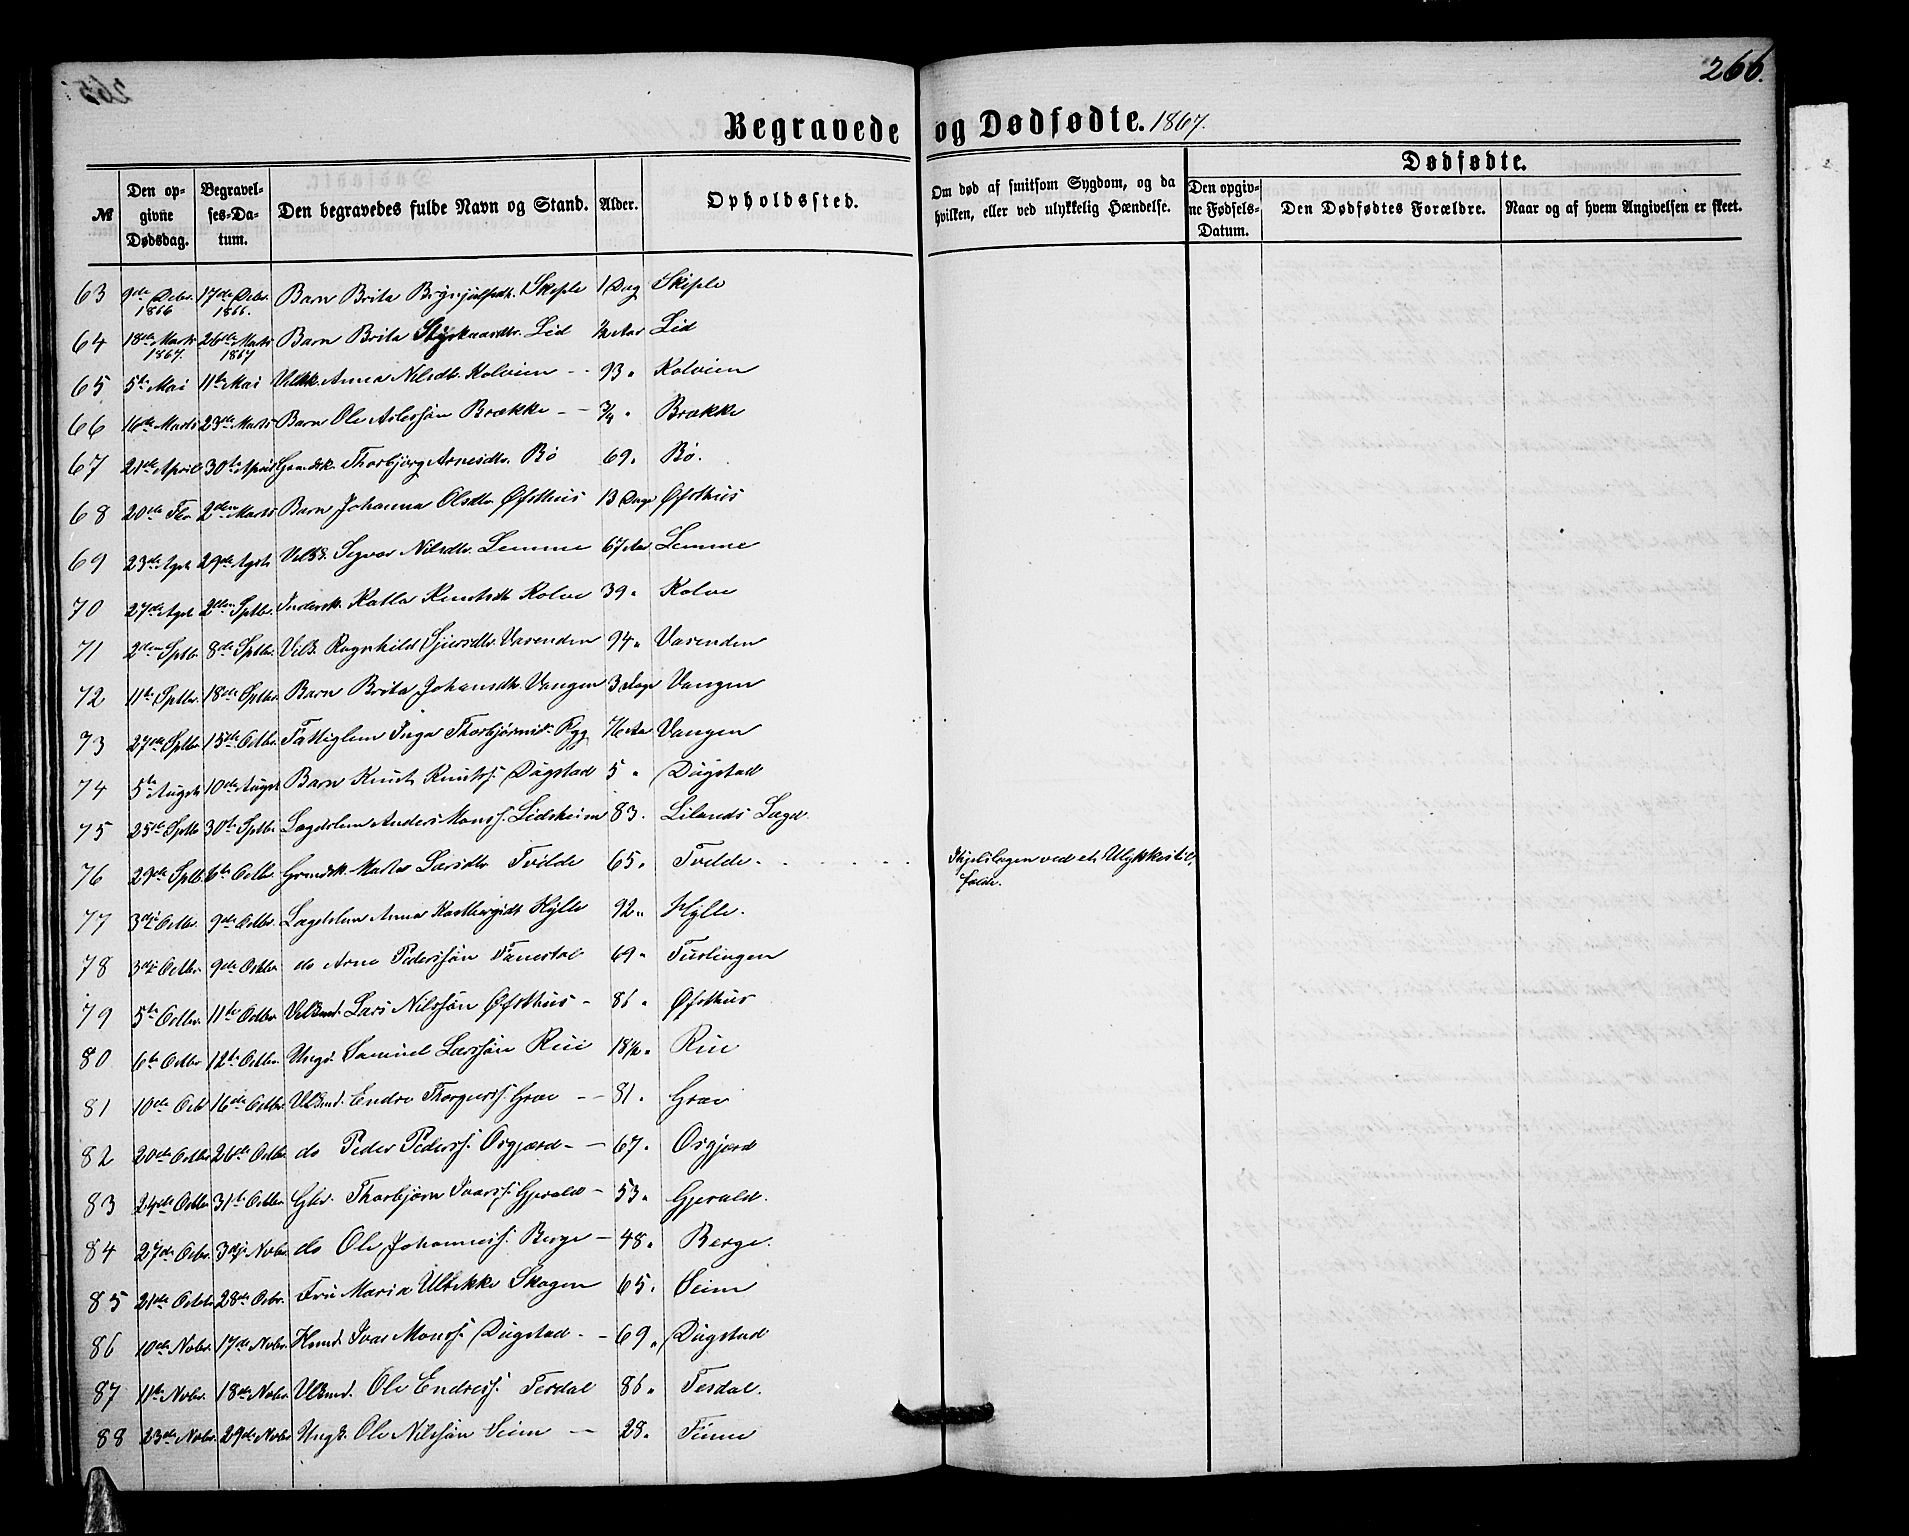 266.
Begravede og Dødfødte. 1867.
№ Den opgivne Dødsdag. Begravelses-Datum. Den begravedes fulde Navn og Stand. Alder. Opholdssted. Om død af smitsom Sygdom, og da hvilken, eller ved ulykkelig Hændelse. Dødfødte. Den opgivne Fødsels-Datum. Den Dødfødtes Forældre. Naar og af hvem Angivelsen er skeet.
63 9de Debr. 1866 17de Debr. 1866. Barn Brita Brynjulfsdt. Skiple 1 Dag Skiple
64 18de Marts 1867. 26de Marts 1867 Barn Brita Styrkaarsdtr. Lid ½ Aar Lid
65 5te Mai 11te Mai Anna Nilsdt. Kolvien - - 93 " Kolvien
66 16de Marts 23de Marts Barn Ole Aslessøn Brække - - ¾ " Brække
67 21de April 30te April Thorbjørg Arnesdtr. Bø 69. Bø.
68 20de Fbr 2den Marts Barn Johanna Olsdtr Øfsthus 13 Dage Øfsthus
69 23de Agst 29de Agst Nilsdtr. Lemme 67 Aar Lemme
70 27de Agst 2den Sptbr. Inderstk. Kolve 39 " Kolve
71 2den Sptbr 8de Sptbr. Ragnhild Sjursdtr. Varenden 94 " Varenden
72 11te Sptbr. 18de Sptbr Barn Brita Johansdt. Vangen 3 Dage Vangen
73 27de Sptbr 15de Octbr. Fattiglem Inga Rygg Vangen
74 5te Augst 10de Augst Barn Knut Knutss. Dugstad 5 " Dugstad
75 25de Sptbr 30te Sptbr. Lægdslem Anders Monss. Lidsheim 83. Lilands Lægd.
76 29de Sptb. 6te Octbr. Marta Larsdtr Tvilde 65 " Tvilde. - - - - Ihjelslagen ved et Ulykkestilfælde.
77 3dje Octbr. 9de Octbr. Lægdslem Anna Hylle 92 " Hylle.
78 3dje Octbr. 9de Octbr. do Arne Pederssøn 69 "
79 5te Octbr. 11te Octbr. Lars Nilssøn Øfsthus - 86 " Øfsthus
80 6te Octbr 12te Octbr. Samuel Larssøn Rui 18½ " Rui
81 10de Octb 16de Octbr. Endre Graue - - 81 " Graue
82 20de Octbr 26de Octbr. do Peder Pederss. Osgjærd - - 67 " Osgjærd
83 24de Octbr 31te Octbr Gbr. Thorbjørn Ivarss. Gjerald - 53 " Gjerald.
84 27de Ocbr. 3dje Nobr. do Ole Johanness. Berge - 48 " Berge.
85 21de Octbr 28de Ocbr. Fru Maria Ulrikke Skagen 65 " Seim
86 10de Nobr. 17de Nobr. Ivar Monss. Dugstad - - 69 " Dugstad
87 11te Nobr. 18de Nobr. Ole Endress. Tesdal 86 " Tesdal.
88 23de Nobr. 29de Nobr. Ole Nilssøn Seim - - 28 "